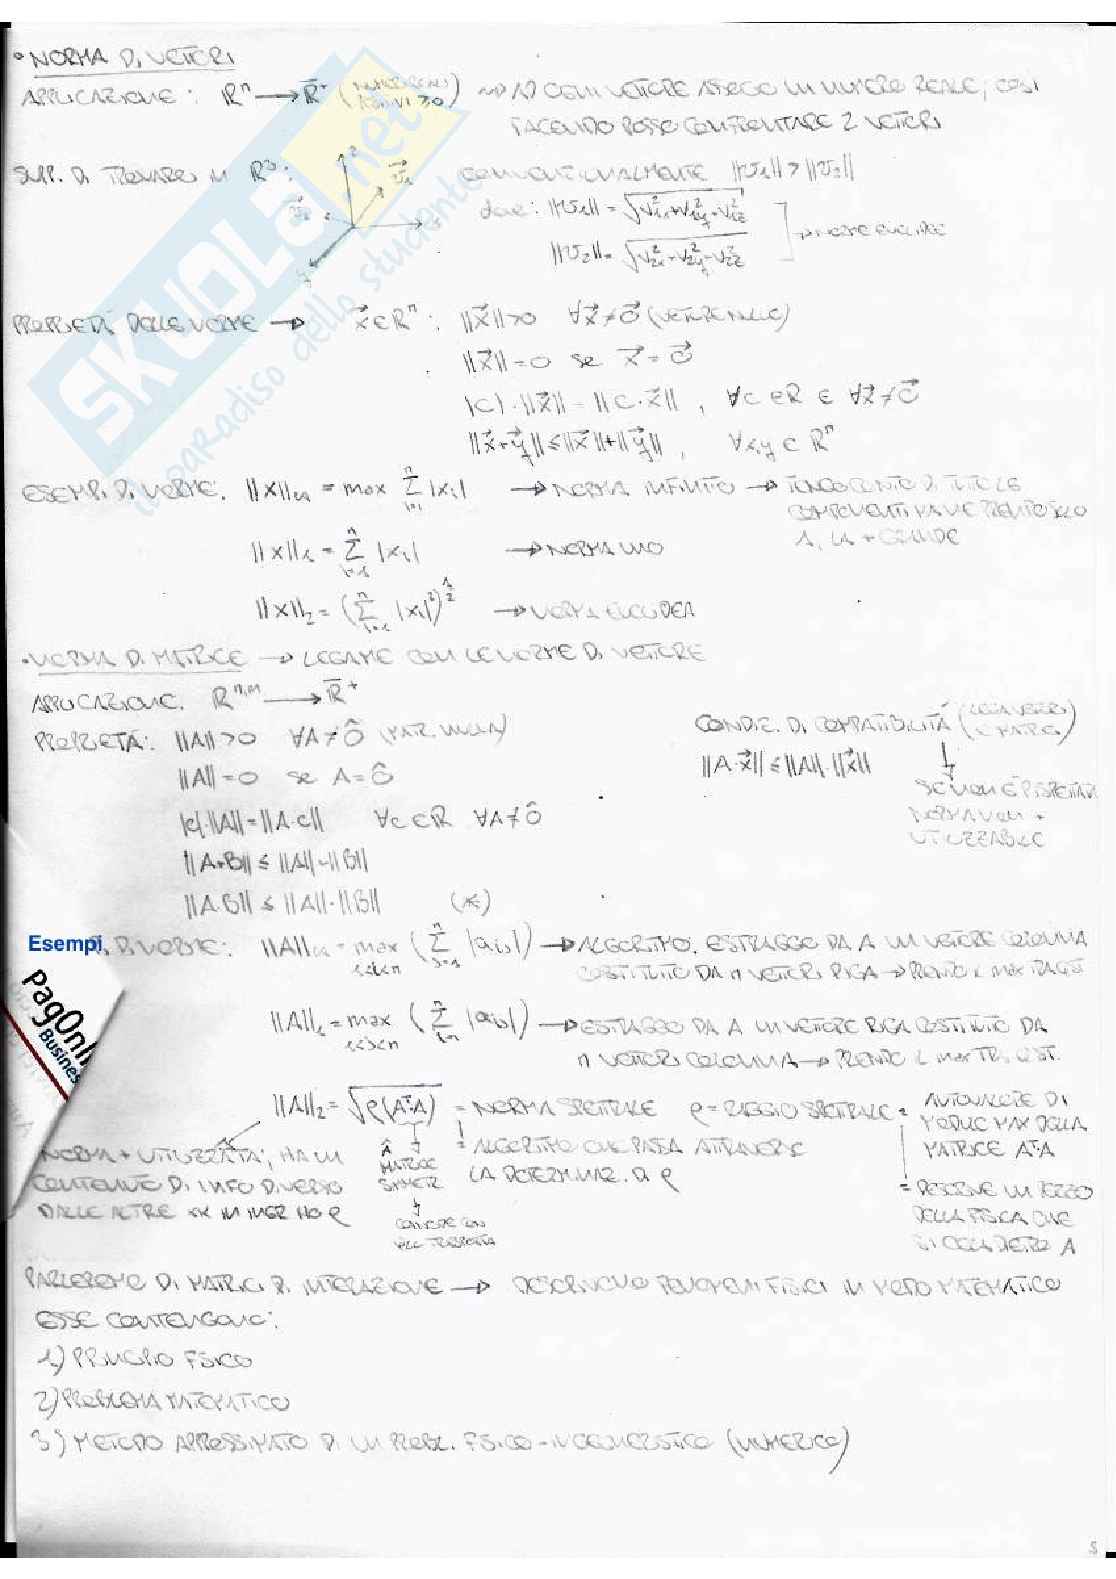 • NORMA DI VETTORI
APPLICAZIONE: ℝⁿ → ℝ̄⁺ (NUMERI REALI POSITIVI ≥0) ⇝ AD OGNI VETTORE ASSEGNO UN NUMERO REALE; COSÌ
FACENDO POSSO CONFRONTARE 2 VETTORI
SUPP. DI TROVARCI IN ℝ³: CONVENZIONALMENTE ||v₁|| > ||v₂||
dove: ||v₁|| = √(v₁ₓ² + v₁y² + v₁z²)
||v₂|| = √(v₂ₓ² + v₂y² + v₂z²) → NORME EUCLIDEE
PROPRIETÀ DELLE NORME → x⃗ ∈ ℝⁿ: ||x⃗|| > 0 ∀x⃗ ≠ 0⃗ (VETTORE NULLO)
||x⃗|| = 0 se x⃗ = 0⃗
|c|·||x⃗|| = ||c·x⃗||, ∀c ∈ ℝ E ∀x⃗ ≠ 0⃗
||x⃗+y⃗|| ≤ ||x⃗|| + ||y⃗||, ∀x,y ∈ ℝⁿ
ESEMPI DI NORME: ||x||∞ = max Σⁿᵢ₌₁ |xᵢ| → NORMA INFINITO → TENGO CONTO DI TUTTE LE
COMPONENTI MA NE PRENDO SOLO
1, LA + GRANDE
||x||₁ = Σⁿᵢ₌₁ |xᵢ| → NORMA UNO
||x||₂ = (Σⁿᵢ₌₁ |xᵢ|²)^½ → NORMA EUCLIDEA
• NORMA DI MATRICE → LEGAME CON LE NORME DI VETTORE
APPLICAZIONE: ℝⁿ,ᵐ → ℝ̄⁺
PROPRIETÀ: ||A|| > 0 ∀A ≠ 0̂ (MAT. NULLA)
CONDIZ. DI COMPATIBILITÀ (LEGA VETTORI E MATRICI)
||A|| = 0 se A = 0̂
||A·x⃗|| ≤ ||A||·||x⃗||
|c|·||A|| = ||A·c|| ∀c ∈ ℝ ∀A ≠ 0̂
SE NON È RISPETTATA
NORMA NON +
UTILIZZABILE
||A+B|| ≤ ||A|| + ||B||
||A·B|| ≤ ||A||·||B|| (*)
Esempi DI NORME: ||A||∞ = max 1≤i≤n (Σⁿⱼ₌₁ |aᵢⱼ|) → ALGORITMO: ESTRAGGO DA A UN VETTORE COLONNA
COSTITUITO DA n VETTORI RIGA → PRENDO IL MAX TRA QUESTI
||A||₁ = max 1≤j≤n (Σⁿᵢ₌₁ |aᵢⱼ|) → ESTRAGGO DA A UN VETTORE RIGA COSTITUITO DA
n VETTORI COLONNA → PRENDO IL MAX TRA QUESTI.
||A||₂ = √ρ(Aᵀ·A) = NORMA SPETTRALE ρ = RAGGIO SPETTRALE = AUTOVALORE DI
MODULO MAX DELLA
MATRICE Aᵀ·A
= ALGORITMO CHE PASSA ATTRAVERSO
LA DETERMINAZ. DI ρ
MATRICE
SIMMETR.
COINCIDE CON
TRASPOSTA
NORMA + UTILIZZATA; HA UN
CONTENUTO DI INFO DIVERSO
DALLE ALTRE
= DESCRIVE UN PEZZO
DELLA FISICA CHE
DIETRO A
PARLEREMO DI MATRICI DI ITERAZIONE → DESCRIVONO FENOMENI FISICI IN MODO MATEMATICO
ESSE CONTENGONO:
1) PRINCIPIO FISICO
2) PROBLEMA MATEMATICO
3) METODO APPROSSIMATO DI UN PROBL. FISICO-INGEGNERISTICO (NUMERICO)
PagOnli
Business
SKUOLA.net
il paradiso dello studente
5